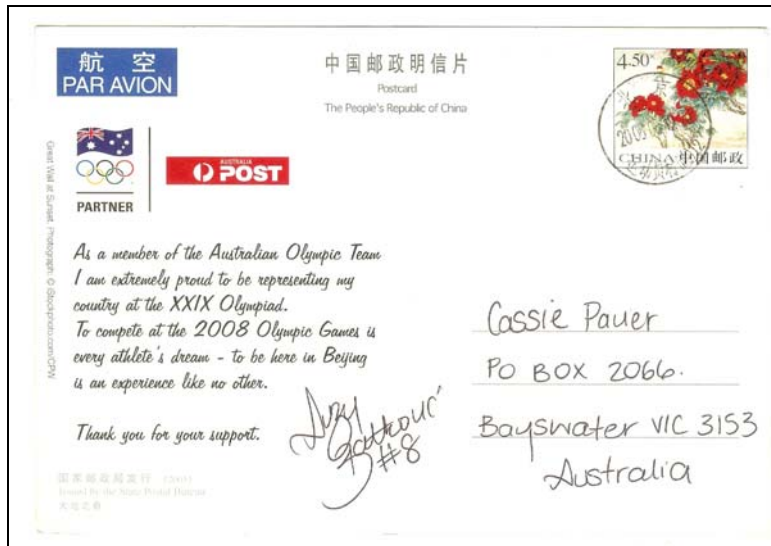 航 空
PAR AVION
中国邮政明信片
Postcard
The People's Republic of China
4.50
CHINA 中国邮政
AUSTRALIA
POST
PARTNER
Great Wall at Sunset. Photograph: © iStockphoto.com/CPW
As a member of the Australian Olympic Team
I am extremely proud to be representing my
country at the XXIX Olympiad.
To compete at the 2008 Olympic Games is
every athlete's dream - to be here in Beijing
is an experience like no other.
Thank you for your support.
Suzy
#8
Cassie Pauer
PO BOX 2066.
Bayswater VIC 3153
Australia
国家邮政局发行
Issued by the State Postal Bureau